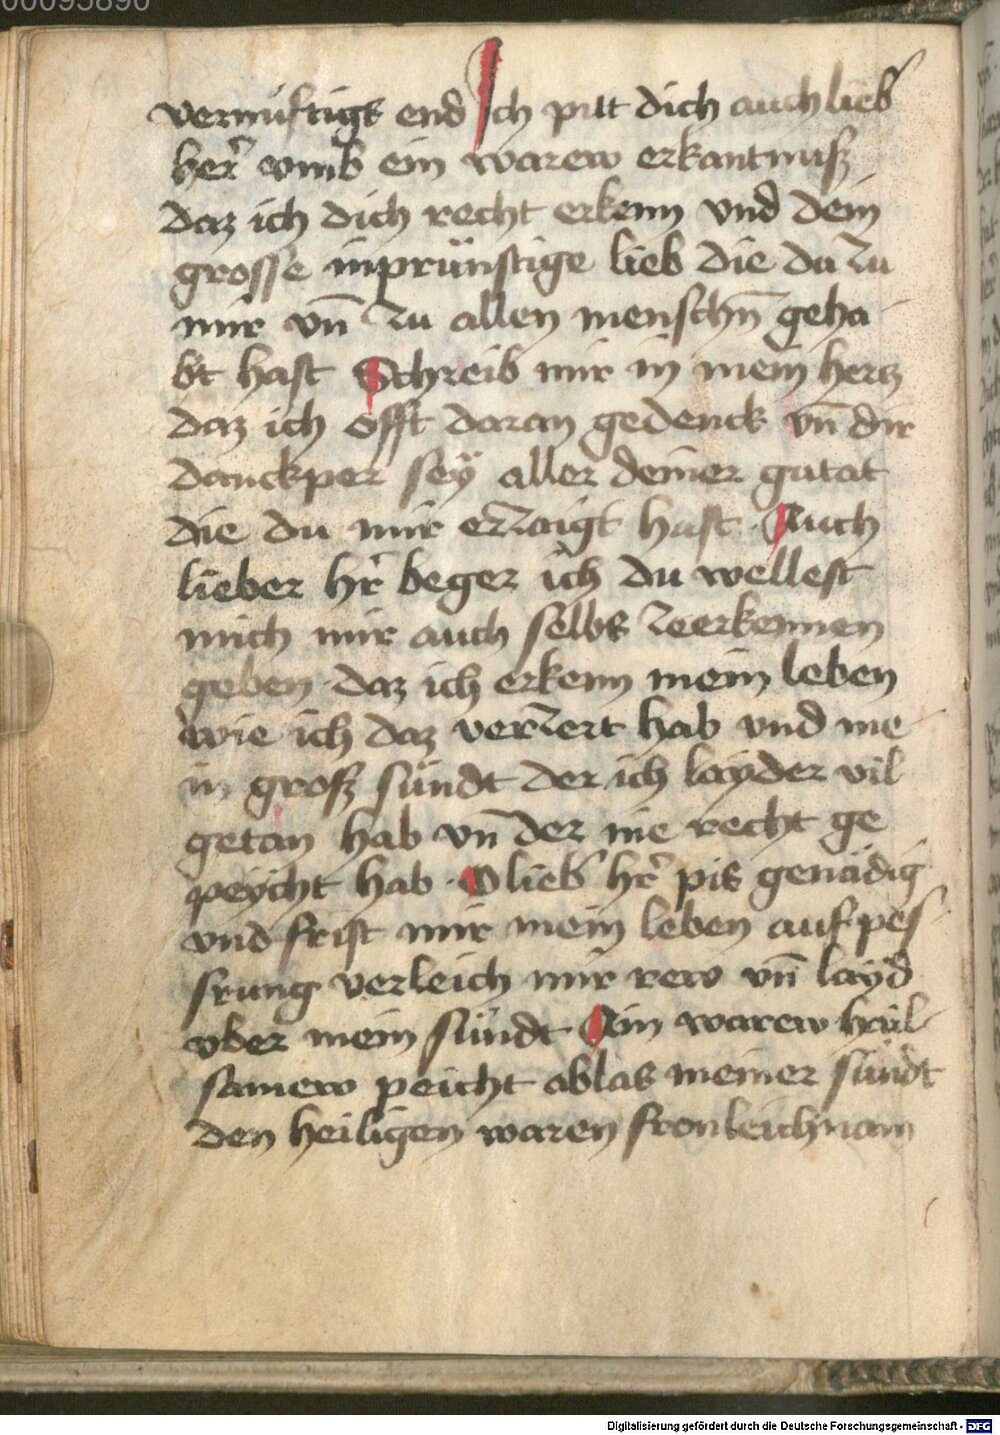 00095890
vernüftigs end Ich pitt dich auch lieb̉
her̉ vmb ein warew erkantnuß
daz ich dich recht erkenn vnd dein
grosse inprünstige lieb die du zu
mir vn̄ zu allen menschn̄ geha
bt hast Schreib mir in mein hertz
daz ich offt daran gedenck vn̄ dir
danckper sey aller deiner gutat
die du mir erzaigt hast Auch
lieber hr̉ beger ich du wellest
mich mir auch selbs zeerkennen
geben daz ich erkenn mein leben
wie ich daz verzert hab vnd me
in groß sündt der ich layder vil
getan hab vn̄ der nie recht ge
peycht hab · O lieb̉ hr̉ pis genädig
vnd frist mir mein leben auf pes
srung verleich mir rew vn̄ layd
vber mein sündt Ain warew hail
samew peicht ablas meiner sündt
den heiligen waren fronleichnam
Digitalisierung gefördert durch die Deutsche Forschungsgemeinschaft - DFG